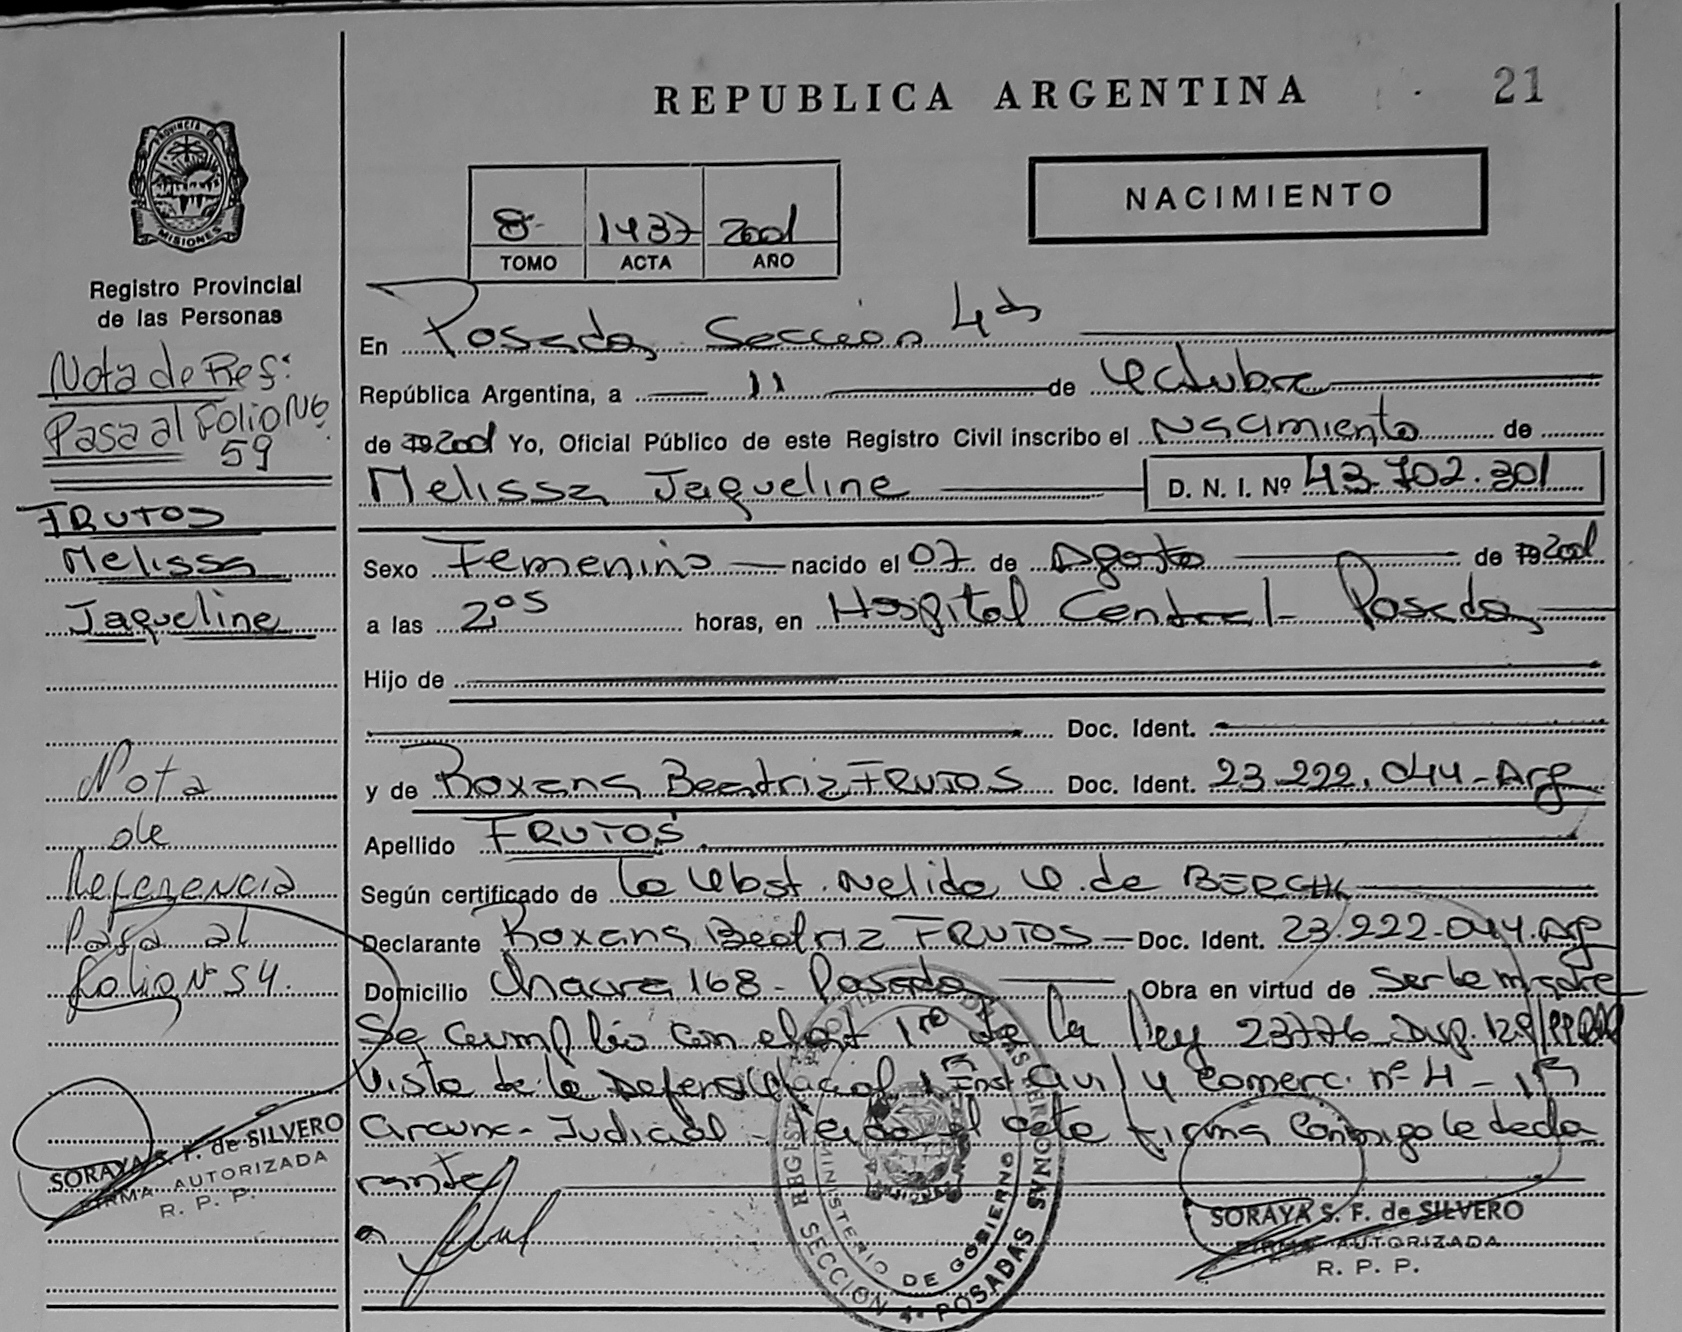 REPUBLICA ARGENTINA
21
PROVINCIA D
MISIONES
Registro Provincial
de las Personas
Nota de Ref:
Pasa al Folio Nº
59
FRUTOS
Melissa
Jaqueline
Nota
de
Referencia
Pasa al
folio Nº 54.
SORAYA S. F. de SILVERO
FIRMA AUTORIZADA
R. P. P.
8- 1437 2001
TOMO ACTA AÑO
NACIMIENTO
En Posadas Sección 4ta
República Argentina, a 11 de Octubre
de 19 2001 Yo, Oficial Público de este Registro Civil inscribo el Nacimiento de
Melissa Jaqueline D. N. I. Nº 43.702.301
Sexo Femenino nacido el 07 de Agosto de 19 2001
a las 2,05 horas, en Hospital Central - Posadas
Hijo de
Doc. Ident.
y de Roxana Beatriz FRUTOS Doc. Ident. 23.222.044-Arg
Apellido FRUTOS
Según certificado de la Obst. Nelida O. de
Declarante Roxana Beatriz FRUTOS - Doc. Ident. 23.222.044.Arg
Domicilio Chacra 168 - Posadas Obra en virtud de ser la madre
Se cumplió con el art 1ro de la Ley 23776 Disp.
Vista de la Defens Oficial 1ra Inst. Civil y Comerc. nº 4 - 1ra
Circunc. Judicial - Leída el acta firma conmigo la decla
rante
REGIST
SECCION 4ª POSADAS
MINISTERIO DE GOBIERNO
SORAYA S. F. de SILVERO
FIRMA AUTORIZADA
R. P. P.